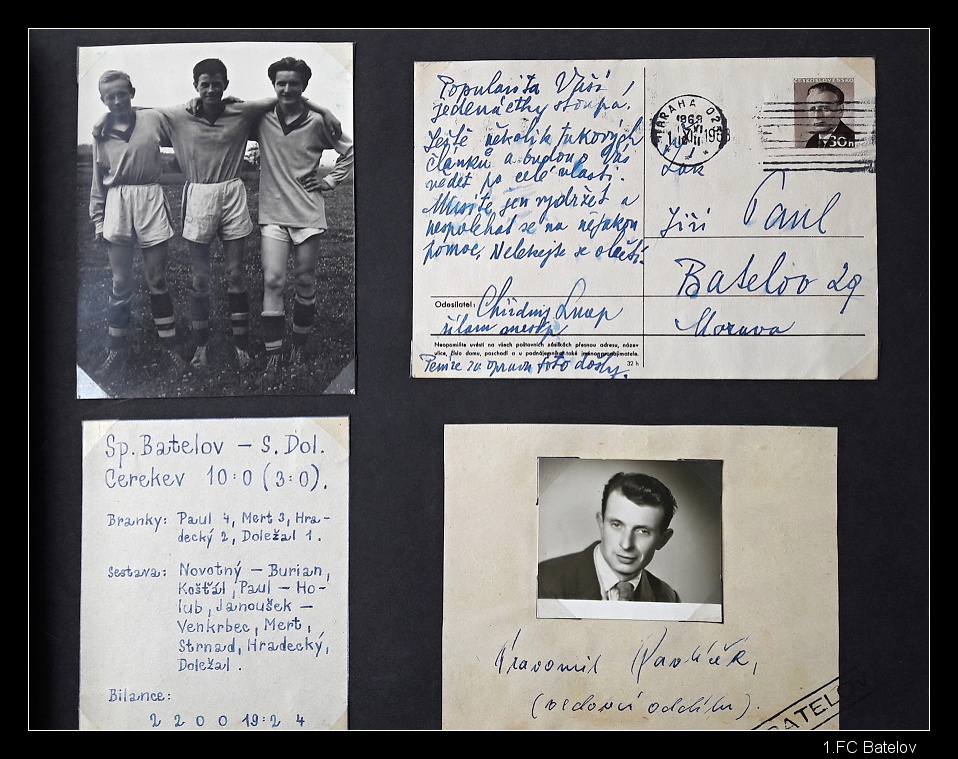 Popularita Vaší
jedenáctky stoupá!
Ještě několik takových
článků a budou Vás
vědět po celé vlasti.
Musíte jen vydržet a
nespoléhat se na nějakou
pomoc. Nelekejte se
Odesílatel:
Nezapomeňte uvésti na všech poštovních zásilkách přesnou adresu, název
ulice, číslo domu, poschodí a u podnájemníků také jméno pronajímatele.
32 h
Peníze za opravu
PRAHA 02
1968
ČESKOSLOVENSKO
30h
Jiří Paul
Batelov 29
Morava
Sp. Batelov – S. Dol.
Cerekev 10:0 (3:0).
Branky: Paul 4, Mert 3, Hra-
decký 2, Doležal 1.
Sestava: Novotný – Burian,
Košťál, Paul – Ho-
lub, Janoušek –
Venkrbec, Mert,
Strnad, Hradecký,
Doležal.
Bilance:
2 2 0 0 19:2 4
Pravomil Pavlíček,
(vedoucí oddílu).
BATELOV
1.FC Batelov